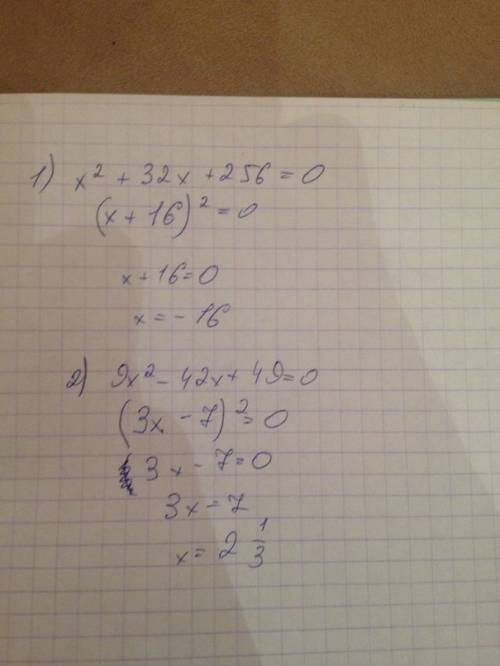 1) x² + 32x + 256 = 0
(x + 16)² = 0
x + 16 = 0
x = - 16
2) 9x² - 42x + 49 = 0
(3x - 7)² = 0
3x - 7 = 0
3x = 7
x = 2 1/3